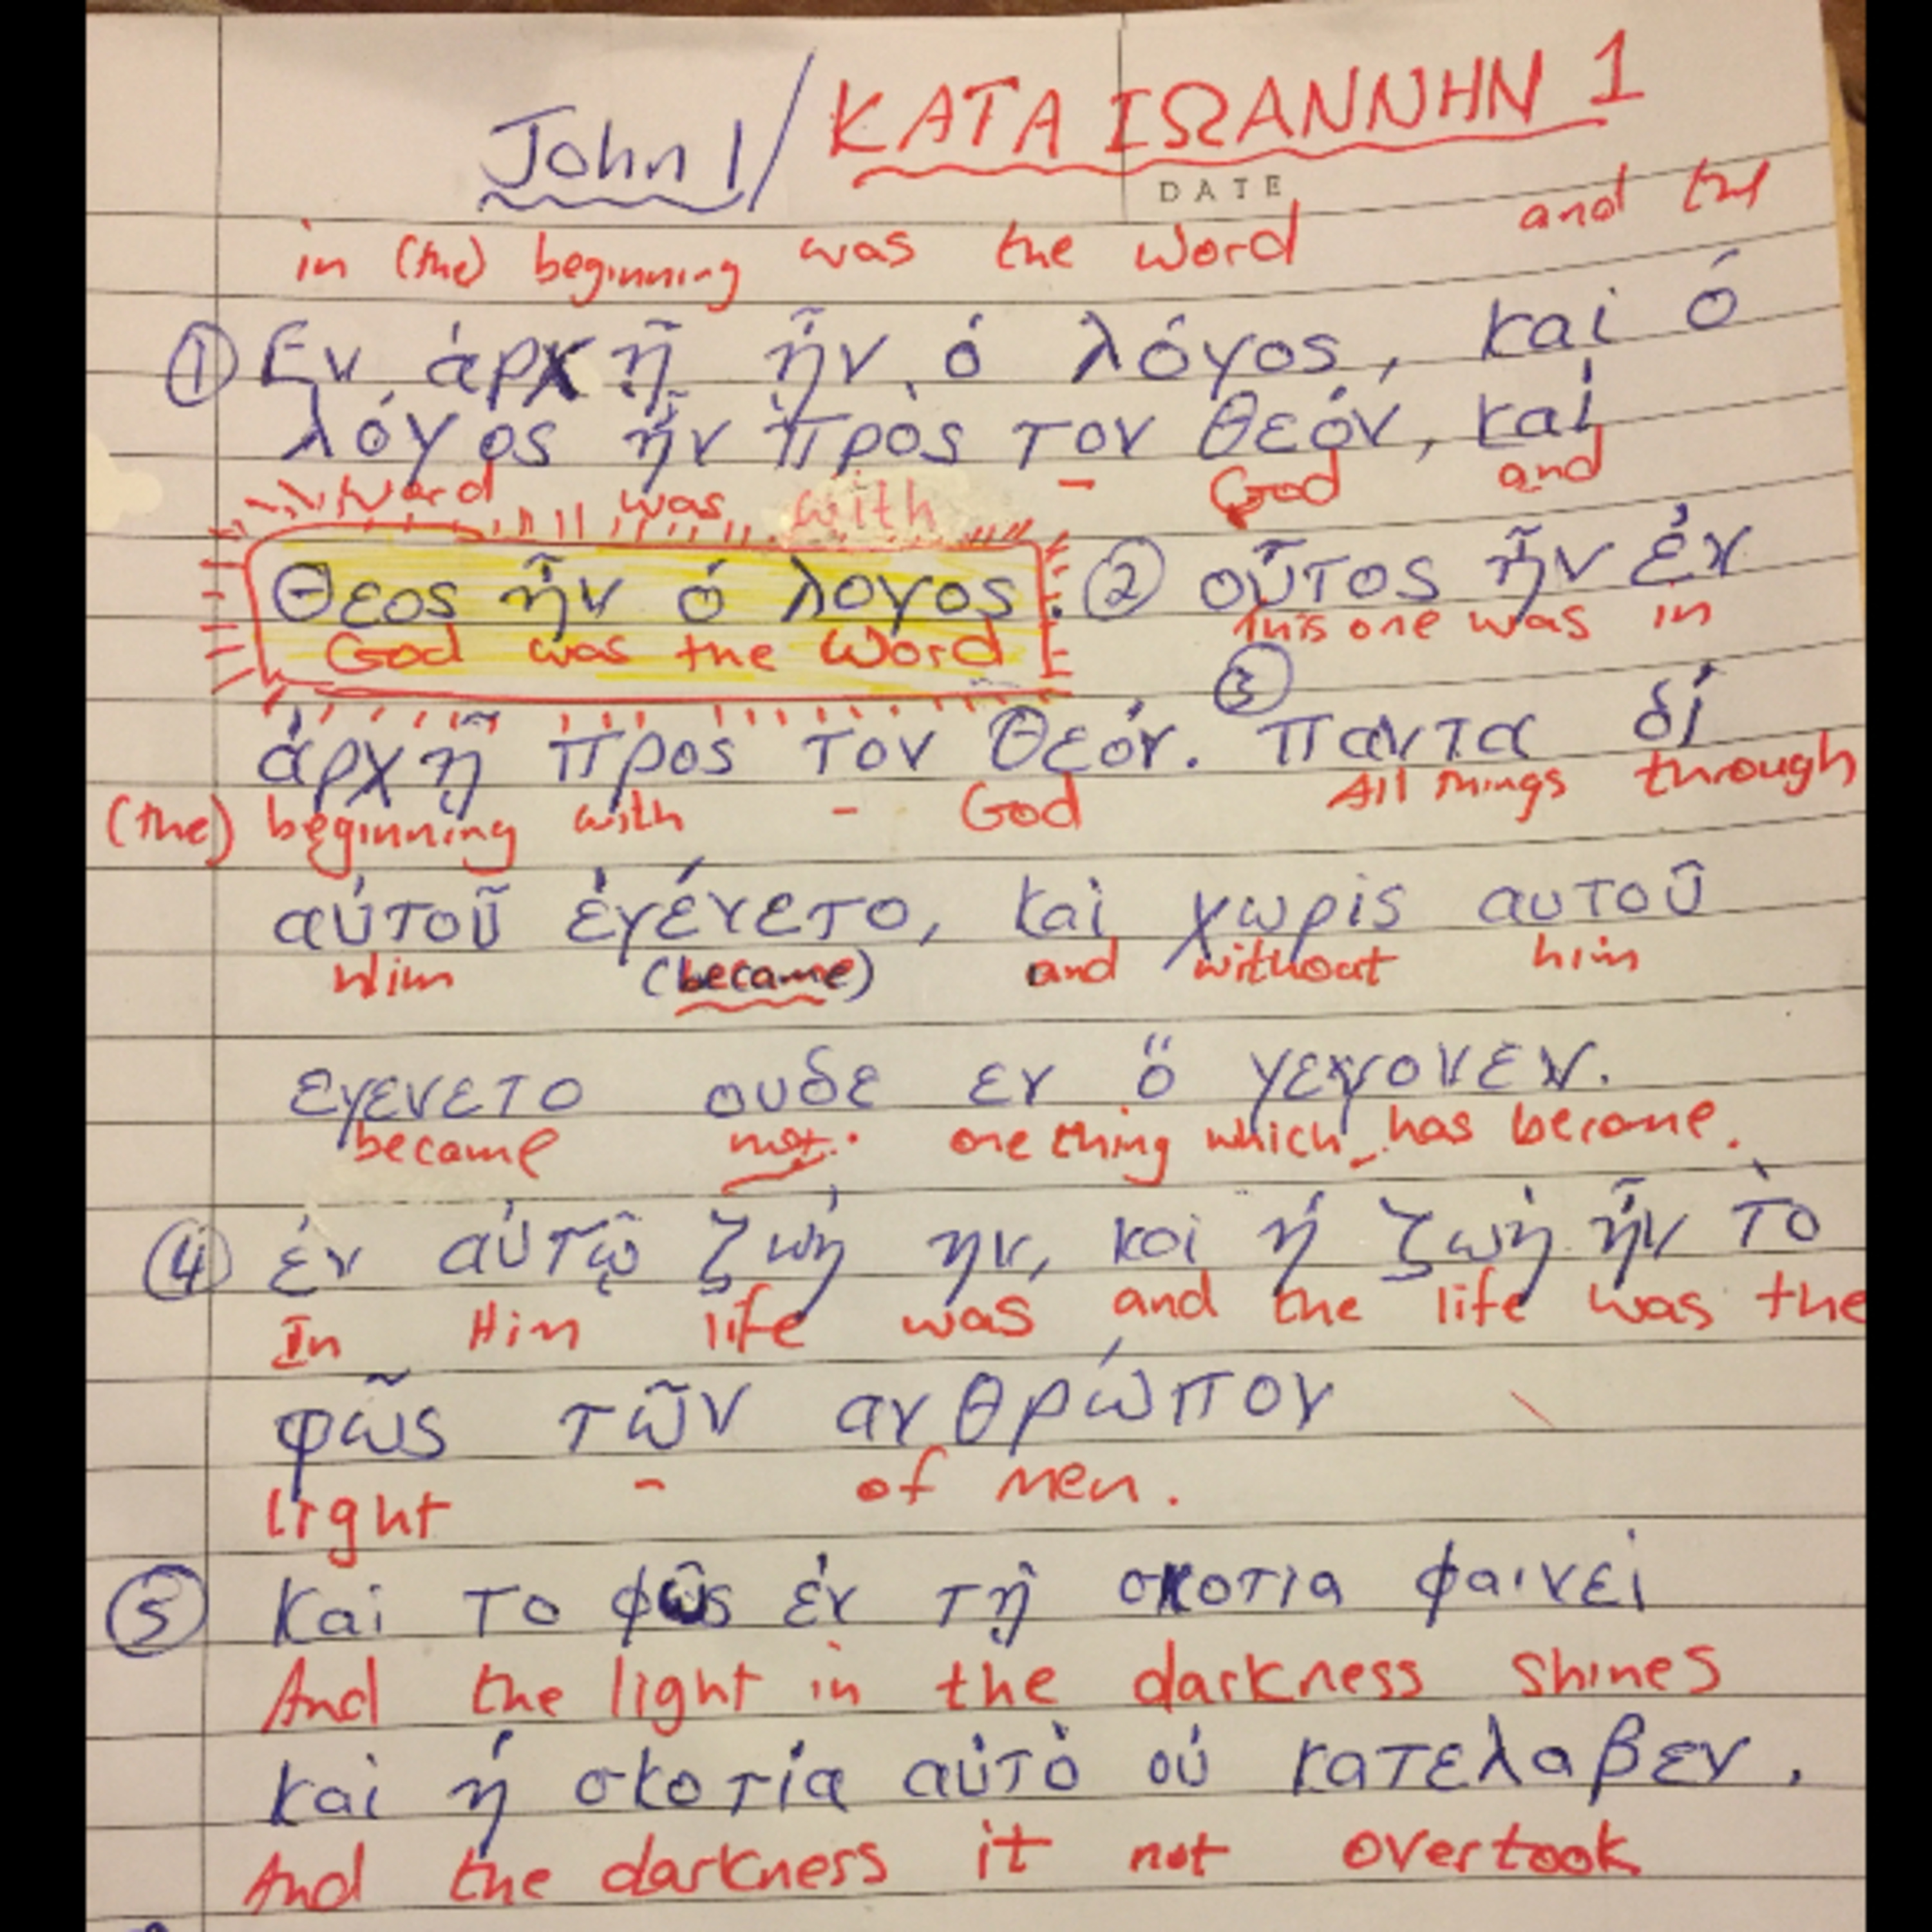 John 1/ ΚΑΤΑ ΙΩΑΝΝΗΝ 1
DATE
in (the) beginning was the Word and the
① Εν ἀρχῇ ἦν ὁ λόγος, καὶ ὁ
λόγος ἦν πρὸς τον Θεόν, καί
Word was with - God and
Θεος ἦν ὁ λογος. ② οὗτος ἦν ἐν
God was the Word This one was in
ἀρχῇ προς τον Θεόν. ③ παντα δἰ
(the) beginning with - God All things through
αὐτοῦ ἐγένετο, καὶ χωρίς αυτοῦ
Him (became) and without him
εγενετο ουδε εν ὅ γεγονεν.
became not. one thing which has become.
④ ἐν αὐτῷ ζωή ην, και ἡ ζωὴ ἦν τὸ
In Him life was and the life was the
φῶς τῶν ανθρώπον
light - of men.
⑤ Καὶ το φῶς ἐν τῇ σκοτια φαινει
And the light in the darkness shines
καὶ ἡ σκοτία αὐτὸ οὐ κατελαβεν.
And the darkness it not overtook